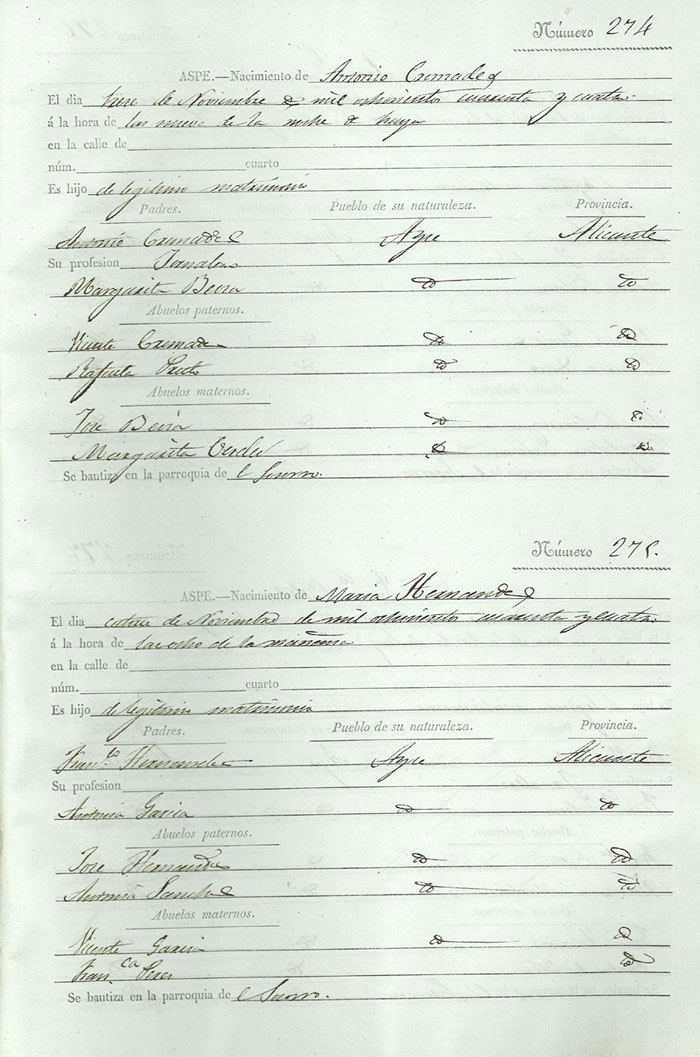 Número 274
ASPE.—Nacimiento de Antonio Cremades
El dia trece de Noviembre de mil ochocientos cuarenta y cuatro
á la hora de las nueve de la noche de
en la calle de
núm. cuarto
Es hijo de legitimo matrimonio
Padres. Pueblo de su naturaleza. Provincia.
Antonio Cremades Aspe Alicante
Su profesion Jornalero
Margarita Beviá do do
Abuelos paternos.
Vicente Cremades do do
Rafaela do do
Abuelos maternos.
Jose Beviá do do
Margarita Verdú do do
Se bautiza en la parroquia de el Socorro.
Número 275.
ASPE.—Nacimiento de Maria Hernandez
El dia catorce de Noviembre de mil ochocientos cuarenta y cuatro
á la hora de las ocho de la mañana
en la calle de
núm. cuarto
Es hijo de legitimo matrimonio
Padres. Pueblo de su naturaleza. Provincia.
Franco Hernandez Aspe Alicante
Su profesion
Antonia Garcia do do
Abuelos paternos.
Jose Hernandez do do
Antonia Sanchez do do
Abuelos maternos.
Vicente Garcia do do
Franca Perez do
Se bautiza en la parroquia de el Socorro.